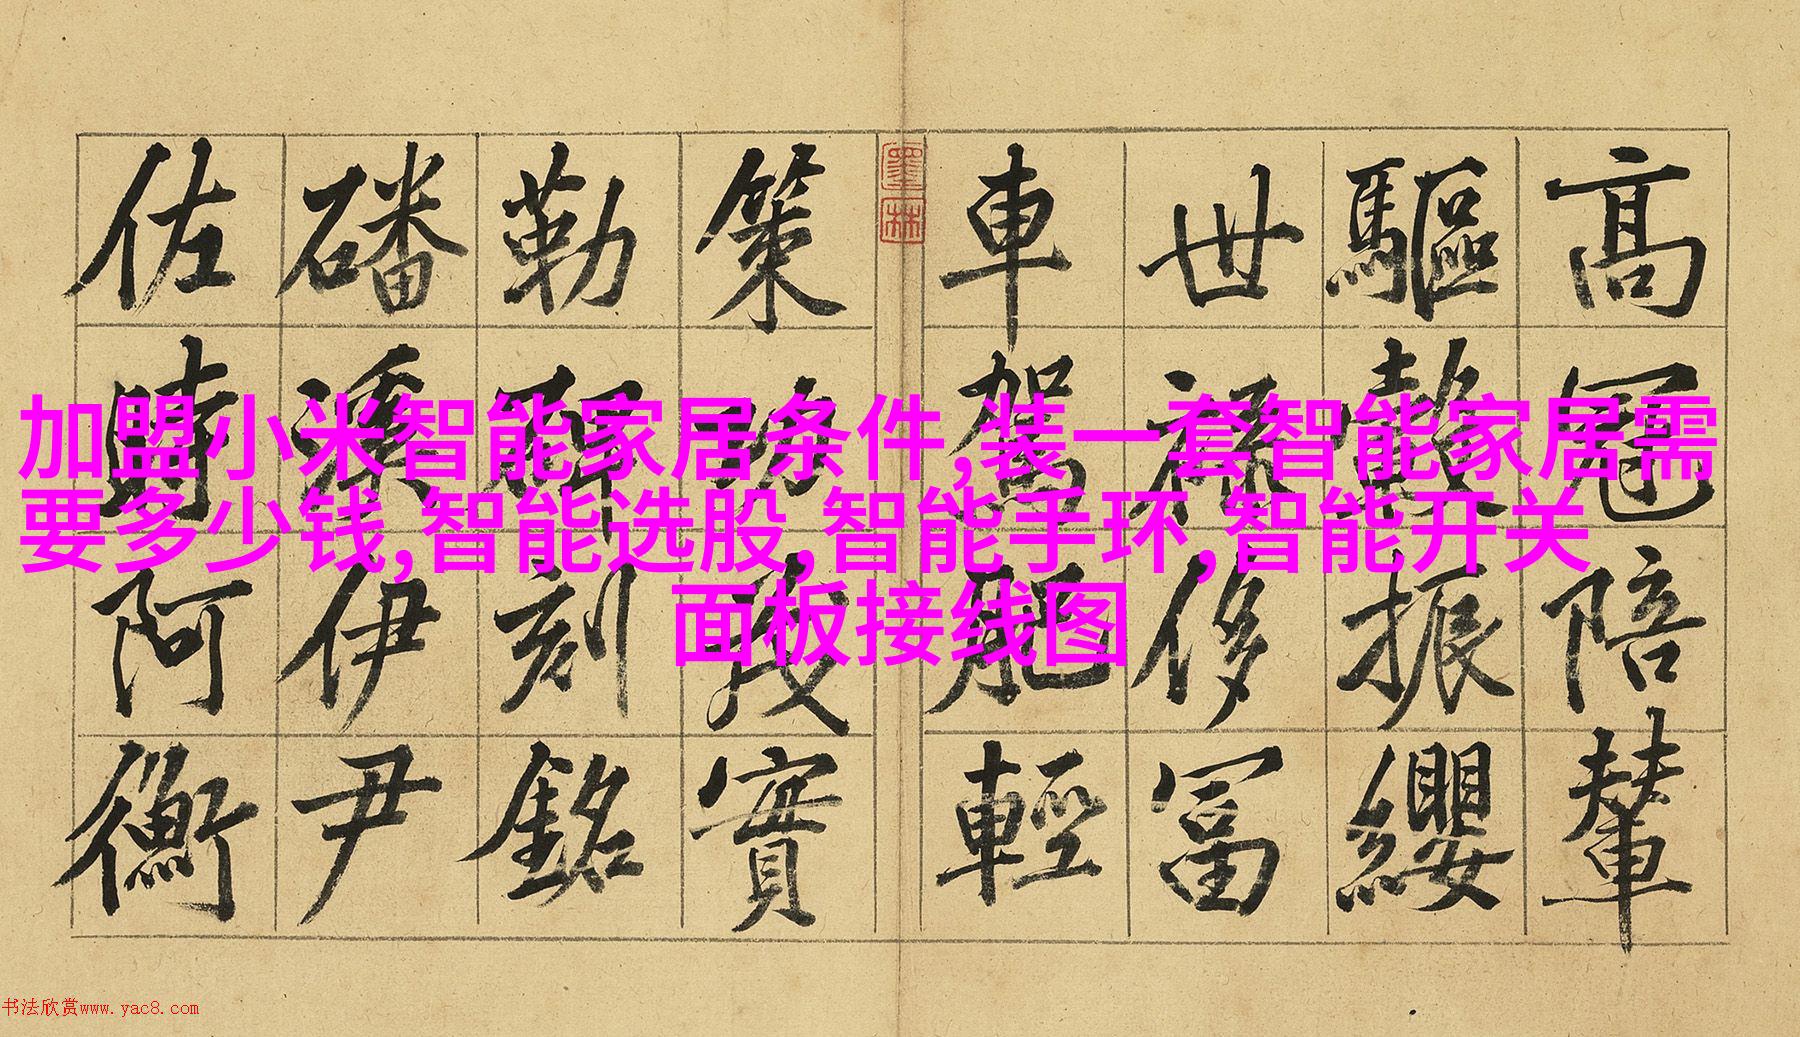 高冠陪輦
驅轂振纓
世祿侈富
車駕肥輕
墨林
策功茂實
勒碑刻銘
磻溪伊尹
佐時阿衡
加盟小米智能家居条件,装一套智能家居需
要多少钱,智能选股,智能手环,智能开关
面板接线图
书法欣赏www.yac8.com